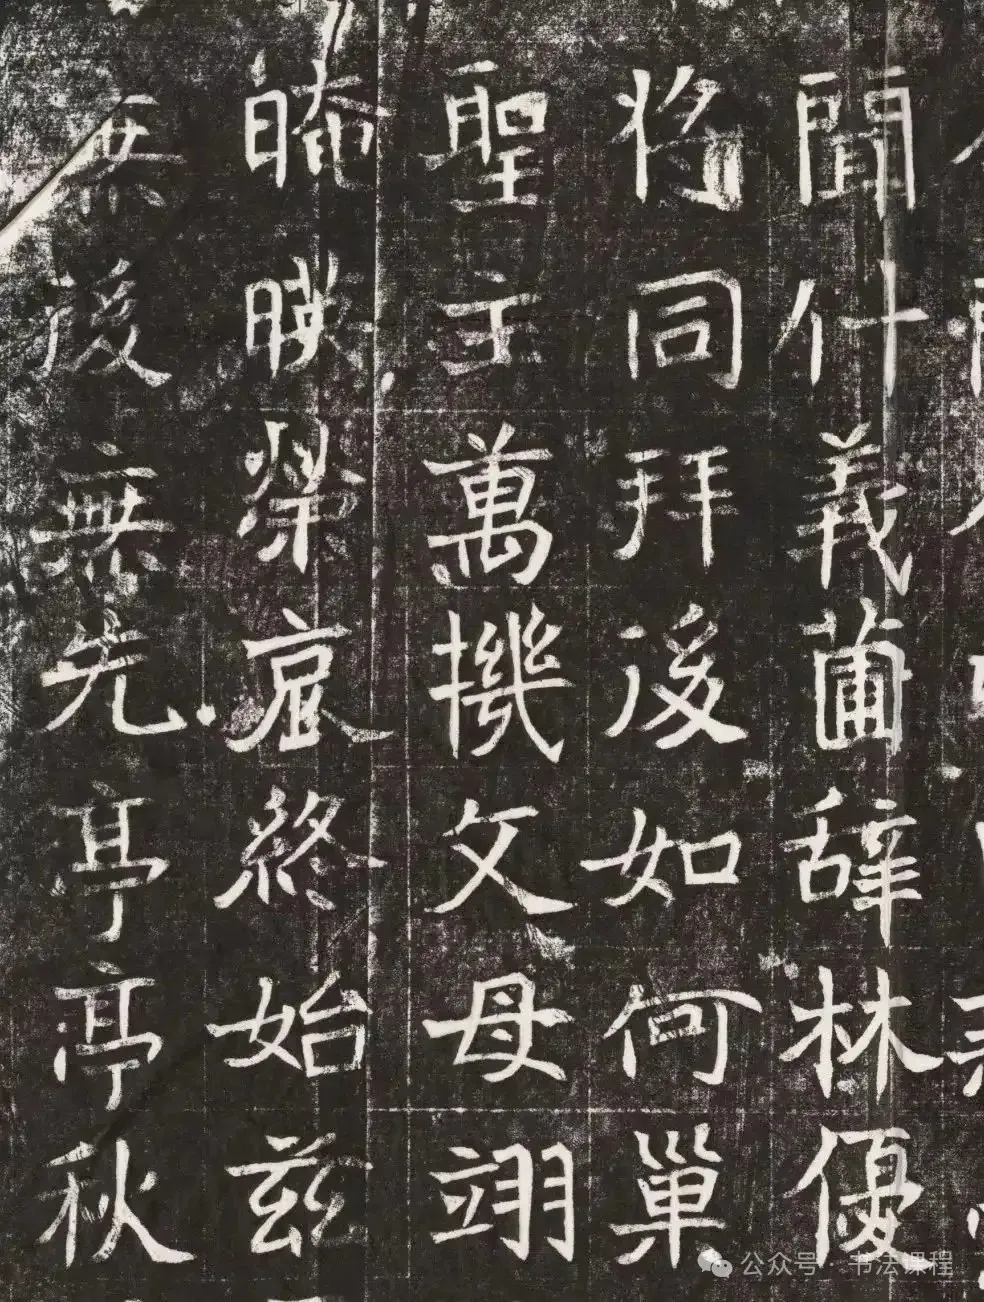 聞什義圃辭林優
将同拜後如何巢
聖主萬機父母翊
晻暎榮哀終始茲
無後無先亭亭秋
公众号·书法课程